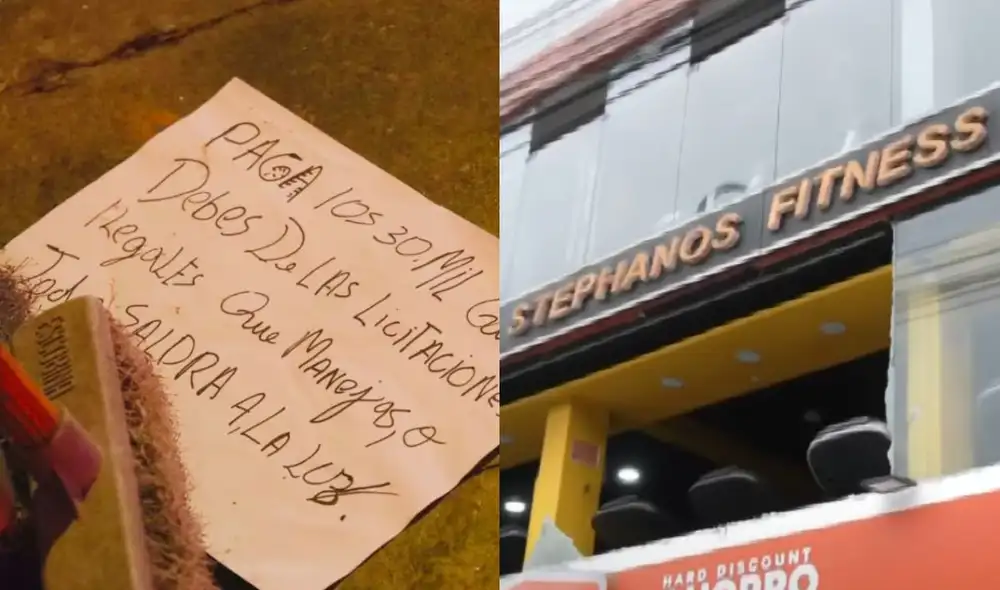 PAGA los 30.Mil
Debes De LAS LicitACIONE
IlegalES Que MANejas, o
SALDRA A, LA LUZ.
STEPHANOS FITNESS
HARD DISCOUNT